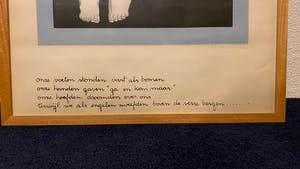 onze voeten stonden vast als bomen
onze handen gaven "ga en kom maar"
onze hoofden droomden over ons
terwijl we als engelen zweefden boven de verre bergen.......